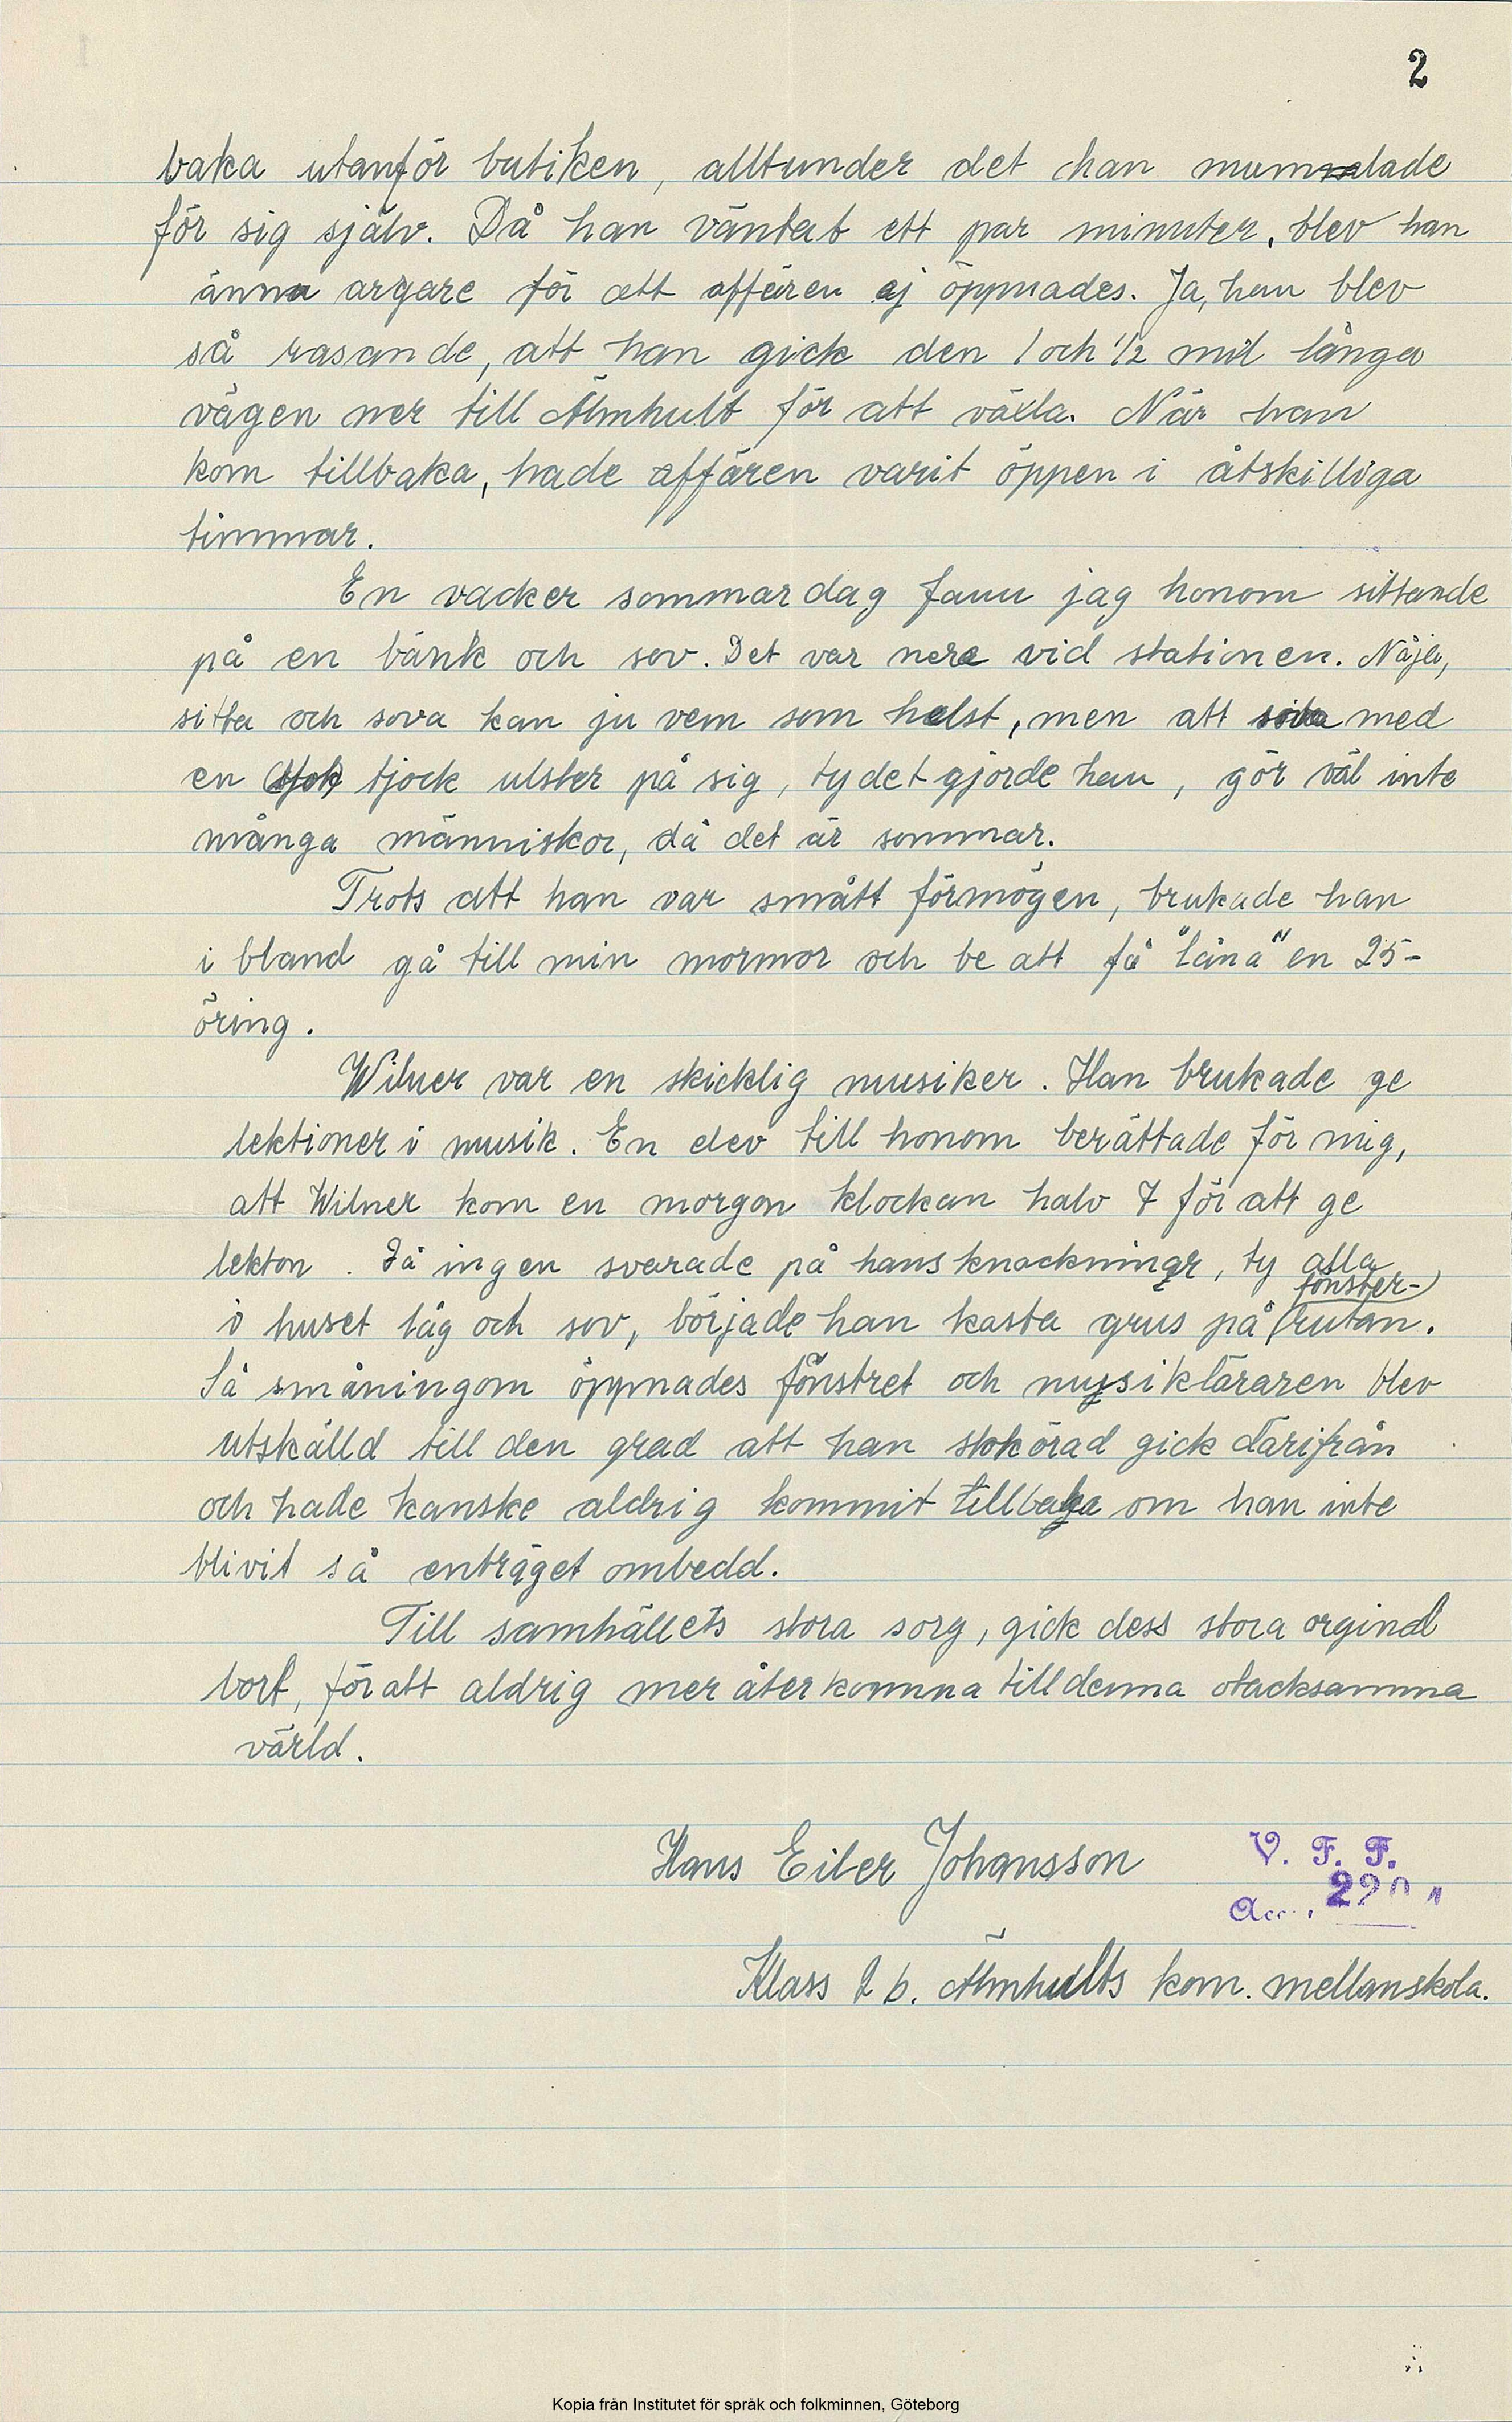 2
baka utanför butiken, alltunder det han mumlade
för sig själv. Då han väntat ett par minuter, blev han
ännu argare för att affären ej öppnades. Ja, han blev
så rasande, att han gick den 1 och 1/2 mil långa
vägen ner till Älmhult för att växla. När han
kom tillbaka, hade affären varit öppen i åtskilliga
timmar.
En vacker sommardag fann jag honom sittande
på en bänk och sov. Det var nere vid stationen. Nåja,
sitta och sova kan ju vem som helst, men att sitta med
en tjock ulster på sig, ty det gjorde han, gör väl inte
många människor, då det är sommar.
Trots att han var smått förmögen, brukade han
i bland gå till min mormor och be att få "låna" en 25-
öring.
Wilner var en skicklig musiker. Han brukade ge
lektioner i musik. En elev till honom berättade för mig,
att Wilner kom en morgon klockan halv 7 för att ge
lekton. Då ingen svarade på hans knackningar, ty alla
i huset låg och sov, började han kasta grus på fönster-
rutan.
Så småningom öppnades fönstret och musikläraren blev
utskälld till den grad att han stokörad gick därifrån
och hade kanske aldrig kommit tillbaka om han inte
blivit så enträget ombedd.
Till samhällets stora sorg, gick dess stora orginal
bort, för att aldrig mer återkomma till denna otacksamma
värld.
Hans Eiler Johansson
V. F. F.
Acc.
Klass 2 b. Älmhults kom. mellanskola.
Kopia från Institutet för språk och folkminnen, Göteborg